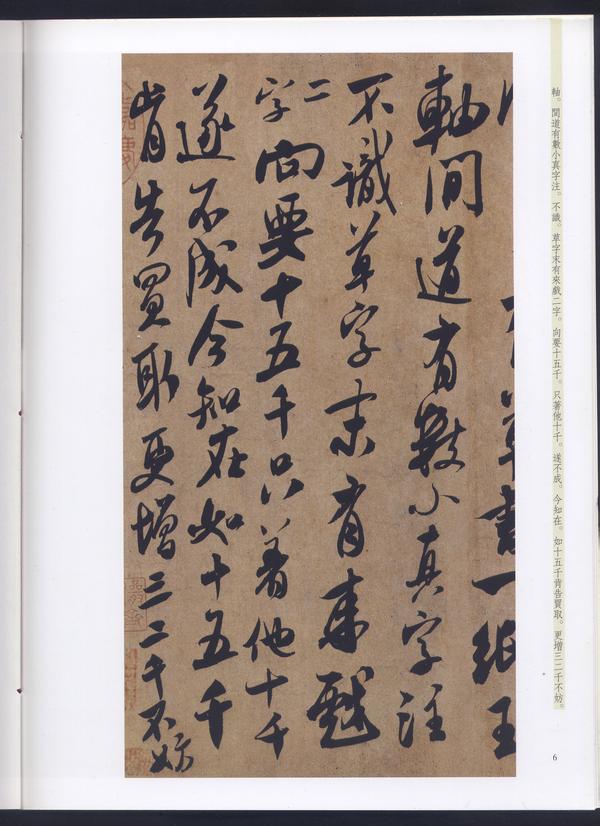 軸。間道有數小真字注。不識。草字末有來戲二字。向要十五千。只著他十千。遂不成。今知在。如十五千肯告買取。更增三二千不妨。
草書一紙玉
軸間道有數小真字注
不識草字末有来戲
二字向要十五千只著他十千
遂不成今知在如十五千
肯告買取更增三二千不妨
6